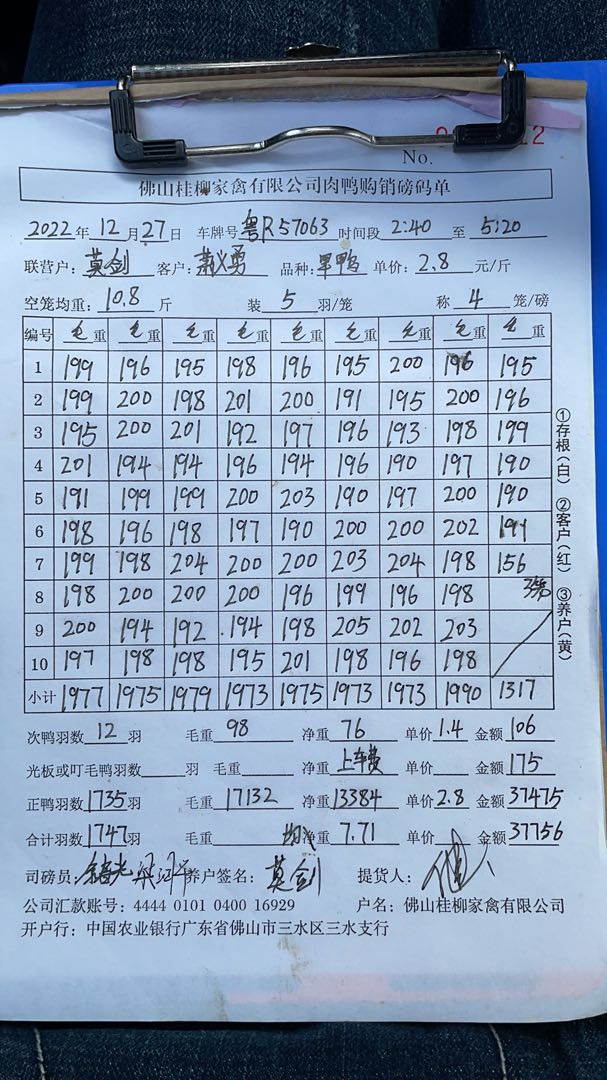 No. 2
佛山桂柳家禽有限公司肉鸭购销磅码单
2022年12月27日 车牌号粤R57063 时间段2:40至5:20
联营户:莫剑 客户:萧义勇 品种:旱鸭 单价:2.8元/斤
空笼均重:10.8斤 装5羽/笼 称4笼/磅
编号 毛重 毛重 毛重 毛重 毛重 毛重 毛重 毛重 毛重
1 199 196 195 198 196 195 200 196 195
2 199 200 198 201 200 191 195 200 196
3 195 200 201 192 197 196 193 198 199
4 201 194 194 196 194 196 190 197 190
5 191 199 199 200 203 190 197 200 190
6 198 196 198 197 190 200 200 202 191
7 199 198 204 200 200 203 204 198 156
8 198 200 200 200 196 199 196 198
9 200 194 192 194 198 205 202 203
10 197 198 198 195 201 198 196 198
小计 1977 1975 1979 1973 1975 1973 1973 1990 1317
次鸭羽数12羽 毛重98 净重76 单价1.4 金额106
光板或叮毛鸭羽数 羽 毛重 净重上车费 单价 金额175
正鸭羽数1735羽 毛重17132 净重13384 单价2.8 金额37475
合计羽数1747羽 毛重 均净重7.71 单价 金额37756
司磅员: 养户签名:莫剑 提货人:
公司汇款账号:4444 0101 0400 16929 户名:佛山桂柳家禽有限公司
开户行:中国农业银行广东省佛山市三水区三水支行
①存根(白) ②客户(红) ③养户(黄)